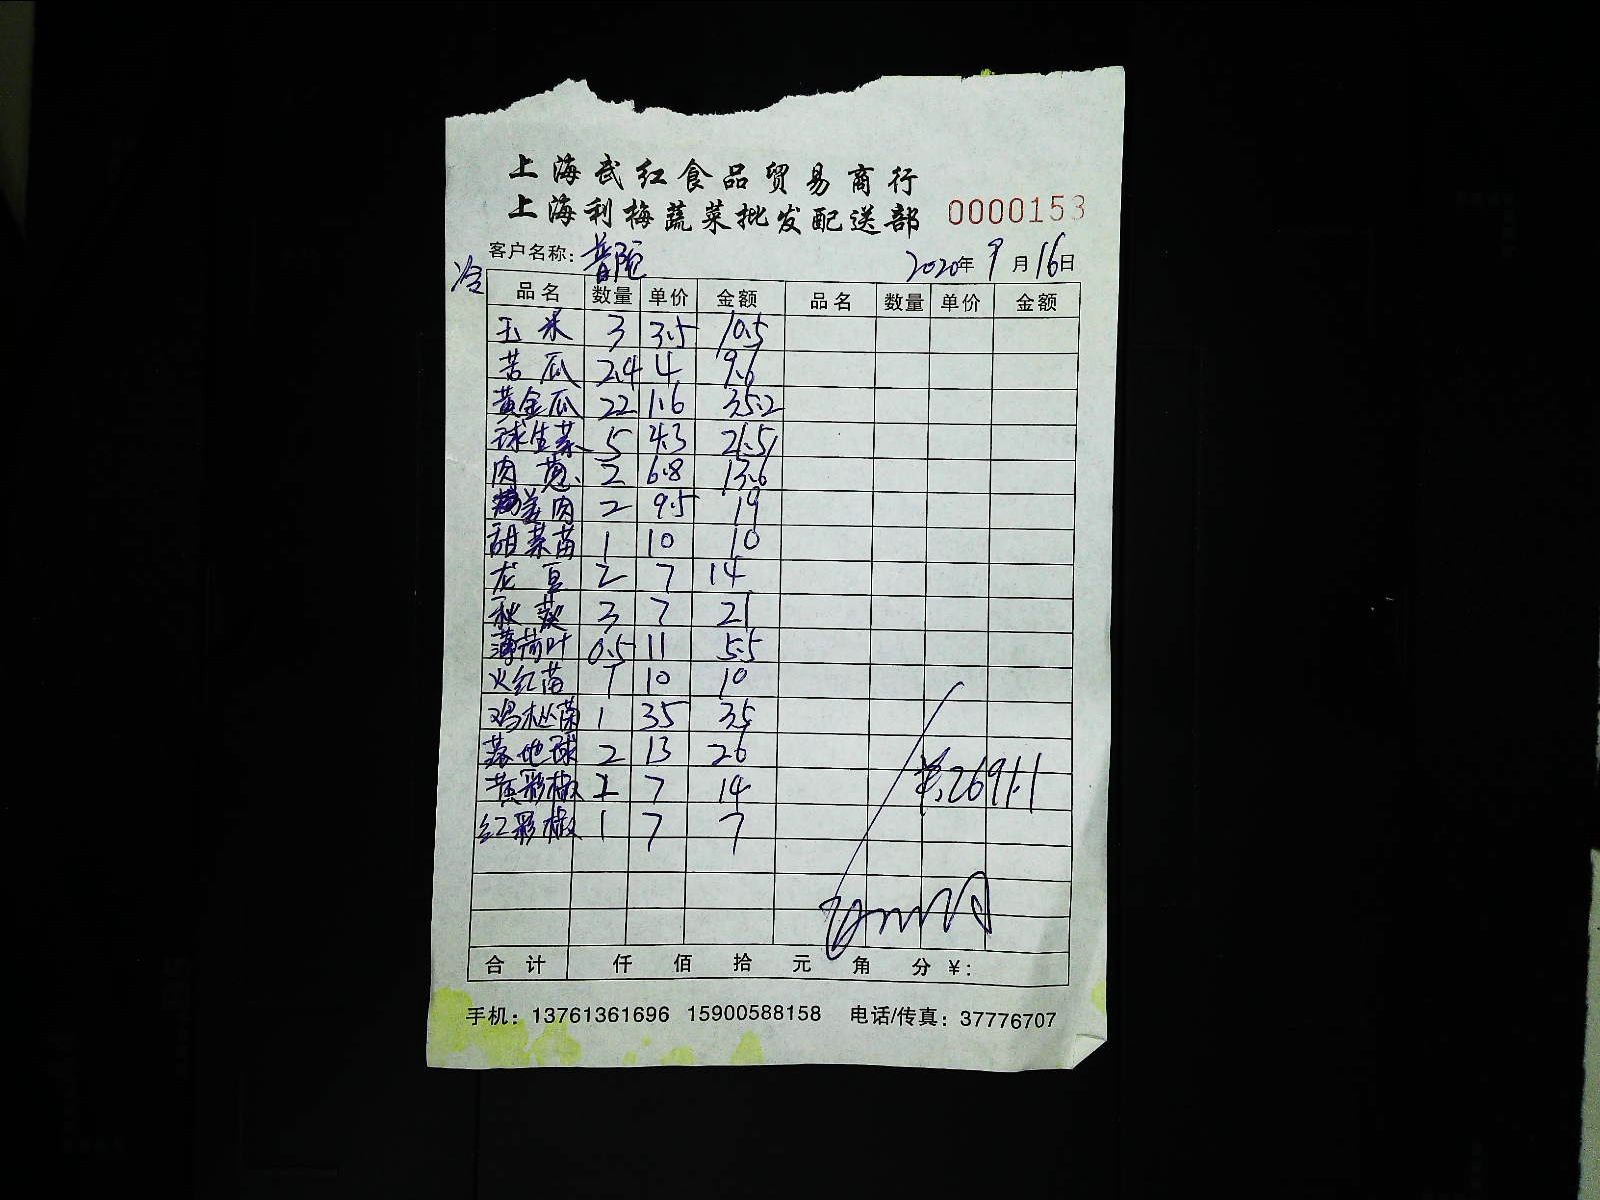 上海武红食品贸易商行
上海利梅蔬菜批发配送部 0000153
客户名称: 普陀 2020年9月16日
冷
品名 数量 单价 金额 品名 数量 单价 金额
玉米 3 3.5 10.5
苦瓜 2.4 4 9.6
黄金瓜 22 1.6 35.2
球生菜 5 4.3 21.5
肉葱 2 6.8 13.6
2 9.5 19
甜菜苗 1 10 10
龙豆 2 7 14
秋葵 3 7 21
薄荷叶 0.5 11 5.5
火红苗 1 10 10
鸡枞菌 1 35 35
落地球 2 13 26
黄彩椒 2 7 14
红彩椒 1 7 7
¥:269.1
合计 仟 佰 拾 元 角 分 ¥:
手机: 13761361696 15900588158 电话/传真: 37776707